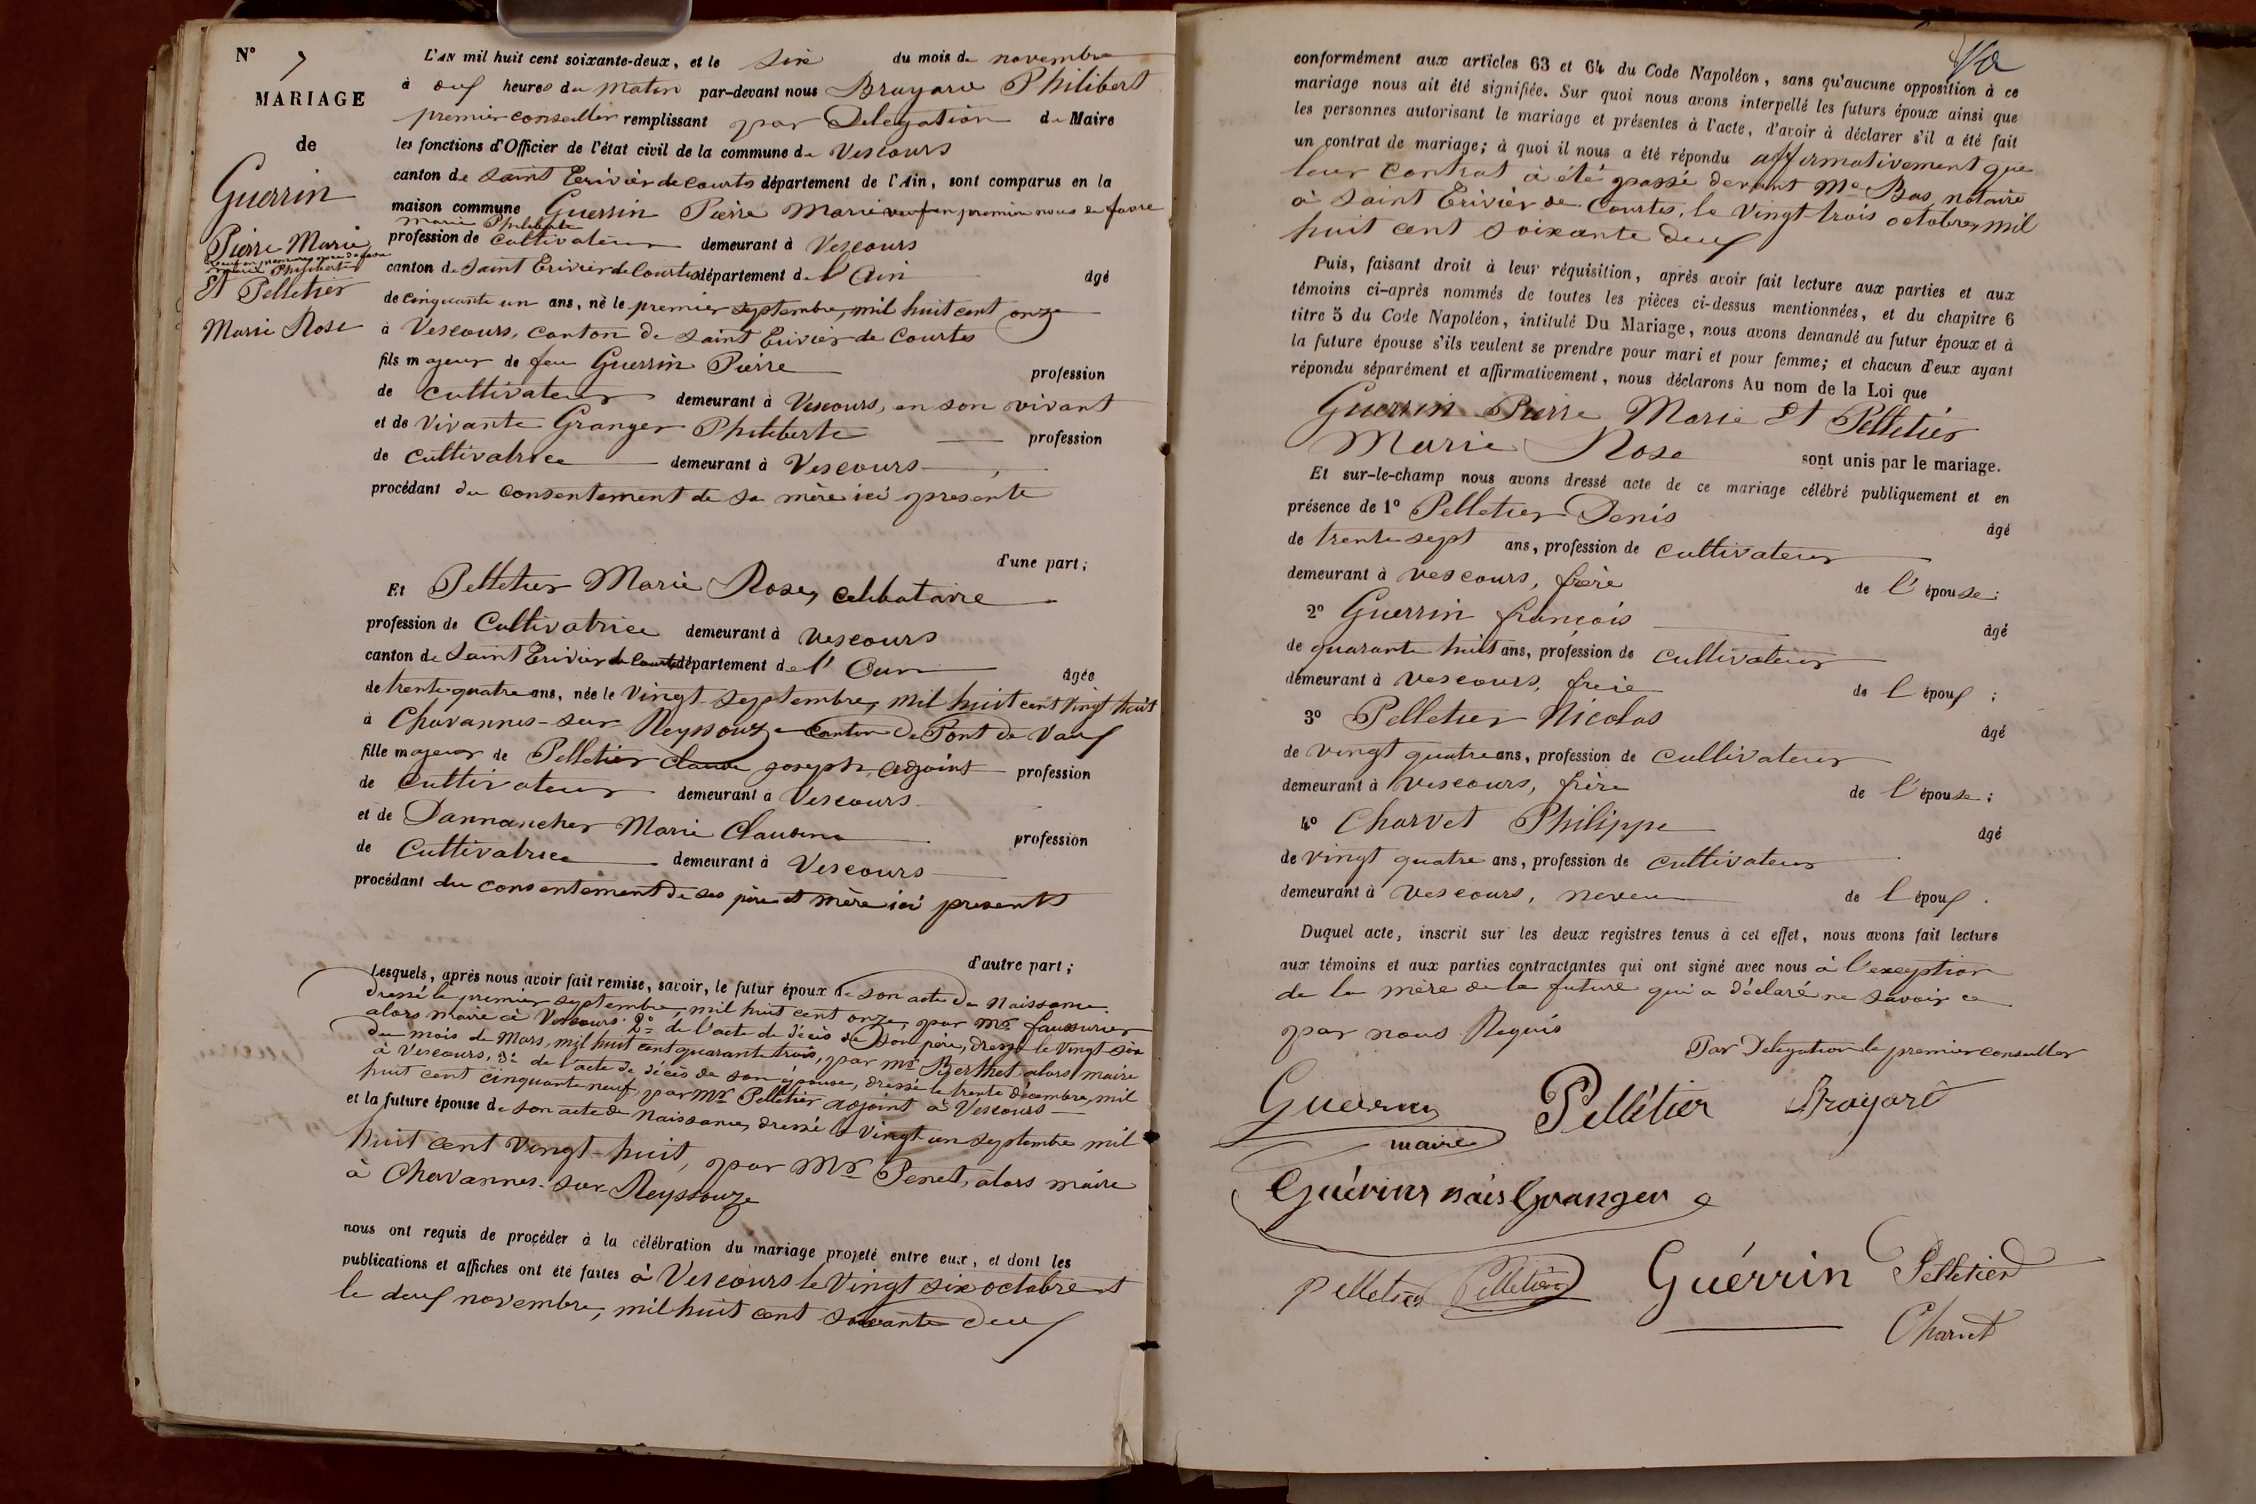 N° 7
MARIAGE
de
Guerrin
Pierre Marie
Marie Philiberte
Et Pelletier
Marie Rose
L'AN mil huit cent soixante-deux, et le six du mois de novembre
à heures du matin par-devant nous Brayard Philibert
premier conseiller remplissant par Délégation du Maire
les fonctions d'Officier de l'état civil de la commune de Vescours
canton de Saint Trivier de Courtes département de l'Ain, sont comparus en la
maison commune Guerrin Pierre Marie veuf en premières noces de favre
Marie Philiberte
profession de cultivateur demeurant à Vescours
canton de Saint Trivier de Courtes département de l'Ain âgé
de cinquante un ans, né le premier septembre, mil huit cent onze
à Vescours, canton de Saint Trivier de Courtes
fils majeur de feu Guerrin Pierre profession
de cultivateur demeurant à Vescours, en son vivant
et de vivante Granger Philiberte profession
de cultivatrice demeurant à Vescours
procédant du consentement de sa mère ici présente
d'une part;
Et Pelletier Marie Rose, celibataire
profession de Cultivatrice demeurant à Vescours
canton de Saint Trivier de Courtes département de l'Ain âgée
de trente quatre ans, née le vingt septembre, mil huit cent vingt huit
à Chavannes-sur Reyssouze canton de Pont de Vaux
fille majeur de Pelletier Claude joseph, adjoint profession
de cultivateur demeurant à Vescours
et de Dannancher Marie Claudine profession
de Cultivatrice demeurant à Vescours
procédant du consentement de ses père et mère ici présents
d'autre part;
Lesquels, après nous avoir fait remise, savoir, le futur époux de son acte de Naissance
dressé le premier septembre, mil huit cent onze, par Mr faussurier
alors maire à Vescours. 2° de l'acte de décès de son père, dressé le vingt six
du mois de Mars, mil huit cent quarante trois, par Mr Berthet alors maire
à Vescours, 3° de l'acte de décès de son épouse, dressé le trente décembre, mil
huit cent cinquante neuf, par Mr Pelletier adjoint à Vescours
et la future épouse de son acte de Naissance, dressé le vingt un septembre mil
huit cent vingt-huit, par Mr Penet, alors maire
à Chavannes-sur Reyssouze
nous ont requis de procéder à la célébration du mariage projeté entre eux, et dont les
publications et affiches ont été faites à Vescours le vingt six octobre et
le deux novembre, mil huit cent soixante deux
conformément aux articles 63 et 64 du Code Napoléon, sans qu'aucune opposition à ce
mariage nous ait été signifiée. Sur quoi nous avons interpellé les futurs époux ainsi que
les personnes autorisant le mariage et présentes à l'acte, d'avoir à déclarer s'il a été fait
un contrat de mariage; à quoi il nous a été répondu affirmativement que
leur contrat a été passé devant Me Bas, notaire
à Saint Trivier de Courtes, le vingt trois octobre, mil
huit cent soixante deux
Puis, faisant droit à leur réquisition, après avoir fait lecture aux parties et aux
témoins ci-après nommés de toutes les pièces ci-dessus mentionnées, et du chapitre 6
titre 5 du Code Napoléon, intitulé Du Mariage, nous avons demandé au futur époux et à
la future épouse s'ils veulent se prendre pour mari et pour femme; et chacun d'eux ayant
répondu séparément et affirmativement, nous déclarons Au nom de la Loi que
Guerrin Pierre Marie Et Pelletier
Marie Rose sont unis par le mariage.
Et sur-le-champ nous avons dressé acte de ce mariage célébré publiquement et en
présence de 1° Pelletier Denis âgé
de trente sept ans, profession de cultivateur
demeurant à Vescours, frère de l'épouse;
2° Guerrin françois âgé
de quarante huit ans, profession de cultivateur
demeurant à Vescours, frère de l époux;
3° Pelletier Nicolas âgé
de vingt quatre ans, profession de cultivateur
demeurant à Vescours, frère de l'épouse;
4° Charvet Philippe âgé
de vingt quatre ans, profession de cultivateur
demeurant à Vescours, neveu de l époux.
Duquel acte, inscrit sur les deux registres tenus à cet effet, nous avons fait lecture
aux témoins et aux parties contractantes qui ont signé avec nous à l'exception
de la mère de la future qui a déclaré ne savoir ce
par nous Requis
Par Délégation le premier conseiller
Guerrin Pelletier Brayard
maire
Guérin née Granger
Pelletier Pelletier Guérrin Pelletier
Charvet